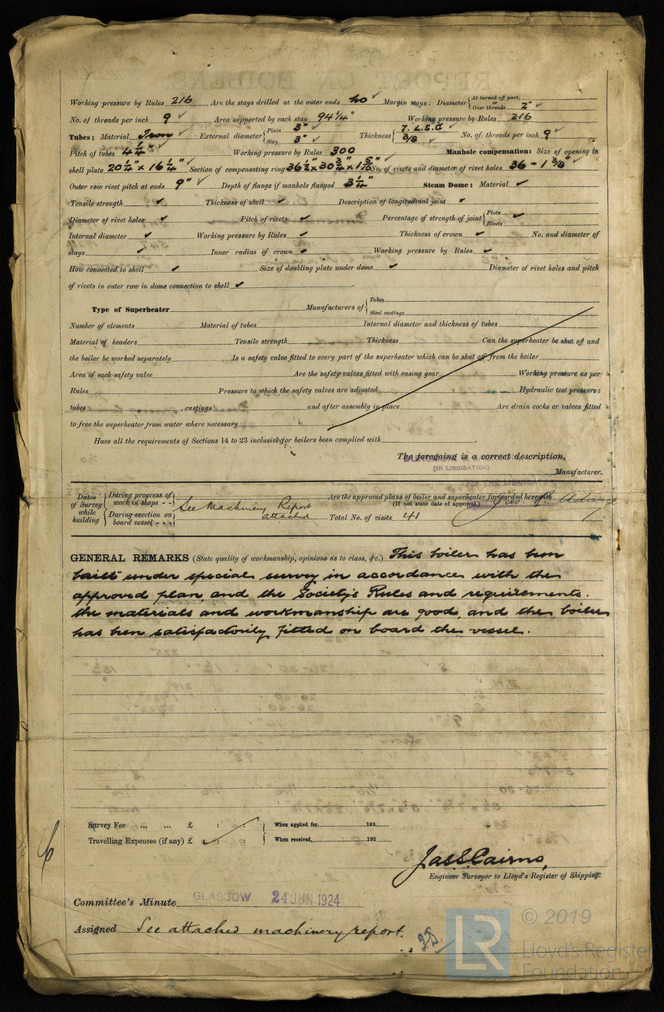 Working pressure by Rules 216 Are the stays drilled at the outer ends No Margin stays: Diameter { At turned off part, Over threads 2" ✓
No. of threads per inch 9 ✓ Area supported by each stay 94¼" Working pressure by Rules 216
Tubes: Material Iron ✓ External diameter { Plain 3" ✓ Stay 3" ✓ Thickness { 7. L.S.G ✓ 3/8 ✓ No. of threads per inch 9 ✓
Pitch of tubes 4¼" ✓ Working pressure by Rules 300 Manhole compensation: Size of opening in
shell plate 20¼" x 16¼" ✓ Section of compensating ring No. of rivets and diameter of rivet holes 36 - 1 3/8" ✓
Outer row rivet pitch at ends 9" ✓ Depth of flange if manhole flanged 3¼" Steam Dome: Material ✓
Tensile strength ✓ Thickness of shell ✓ Description of longitudinal joint ✓
Diameter of rivet holes ✓ Pitch of rivets ✓ Percentage of strength of joint { Plate ✓ Rivets
Internal diameter ✓ Working pressure by Rules ✓ Thickness of crown ✓ No. and diameter of
stays ✓ Inner radius of crown ✓ Working pressure by Rules ✓
How connected to shell ✓ Size of doubling plate under dome ✓ Diameter of rivet holes and pitch
of rivets in outer row in dome connection to shell ✓
Type of Superheater Manufacturers of { Tubes Steel castings
Number of elements Material of tubes Internal diameter and thickness of tubes
Material of headers Tensile strength Thickness Can the superheater be shut off and
the boiler be worked separately Is a safety valve fitted to every part of the superheater which can be shut off from the boiler
Area of each safety valve Are the safety valves fitted with easing gear Working pressure as per
Rules Pressure to which the safety valves are adjusted Hydraulic test pressure:
tubes castings and after assembly in place Are drain cocks or valves fitted
to free the superheater from water where necessary
Have all the requirements of Sections 14 to 23 inclusive for boilers been complied with
The foregoing is a correct description,
(IN LIQUIDATION)
Manufacturer.
Dates of Survey while building { During progress of work in shops - - During erection on board vessel - - - } See Machinery Report attached
Are the approved plans of boiler and superheater forwarded herewith (If not state date of approval.)
Total No. of visits 41
GENERAL REMARKS (State quality of workmanship, opinions as to class, &c.) This boiler has been
built under special survey in accordance with the
approved plan and the Society's Rules and requirements.
The materials and workmanship are good, and the boiler
has been satisfactorily fitted on board the vessel.
Survey Fee ... ... £ : : When applied for, 192
Travelling Expenses (if any) £ : : When received, 192
Jas S Cairns,
Engineer Surveyor to Lloyd's Register of Shipping.
Committee's Minute GLASGOW 24 JUN 1924
Assigned See attached machinery report.
LR © 2019
Lloyd's Register
Foundation